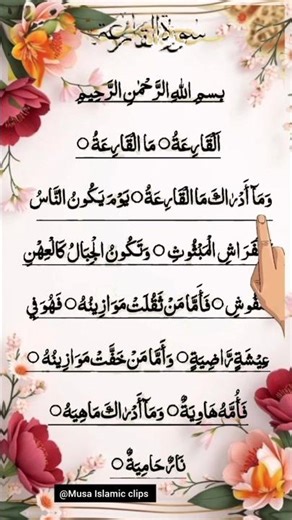 سورة القارعة
بِسْمِ اللهِ الرَّحْمٰنِ الرَّحِيْمِ
اَلْقَارِعَةُ ○ مَا الْقَارِعَةُ ○
وَمَآ أَدْرَاكَ مَا الْقَارِعَةُ ○ يَوْمَ يَكُونُ النَّاسُ
كَالْفَرَاشِ الْمَبْثُوثِ ○ وَتَكُونُ الْجِبَالُ كَالْعِهْنِ
الْمَنْفُوشِ ○ فَأَمَّا مَنْ ثَقُلَتْ مَوَازِينُهُ ○ فَهُوَ فِي
عِيْشَةٍ رَّاضِيَةٍ ○ وَأَمَّا مَنْ خَفَّتْ مَوَازِينُهُ ○
فَأُمُّهُ هَاوِيَةٌ ○ وَمَآ أَدْرَاكَ مَاهِيَهْ ○
نَارٌ حَامِيَةٌ ○
@Musa Islamic clips